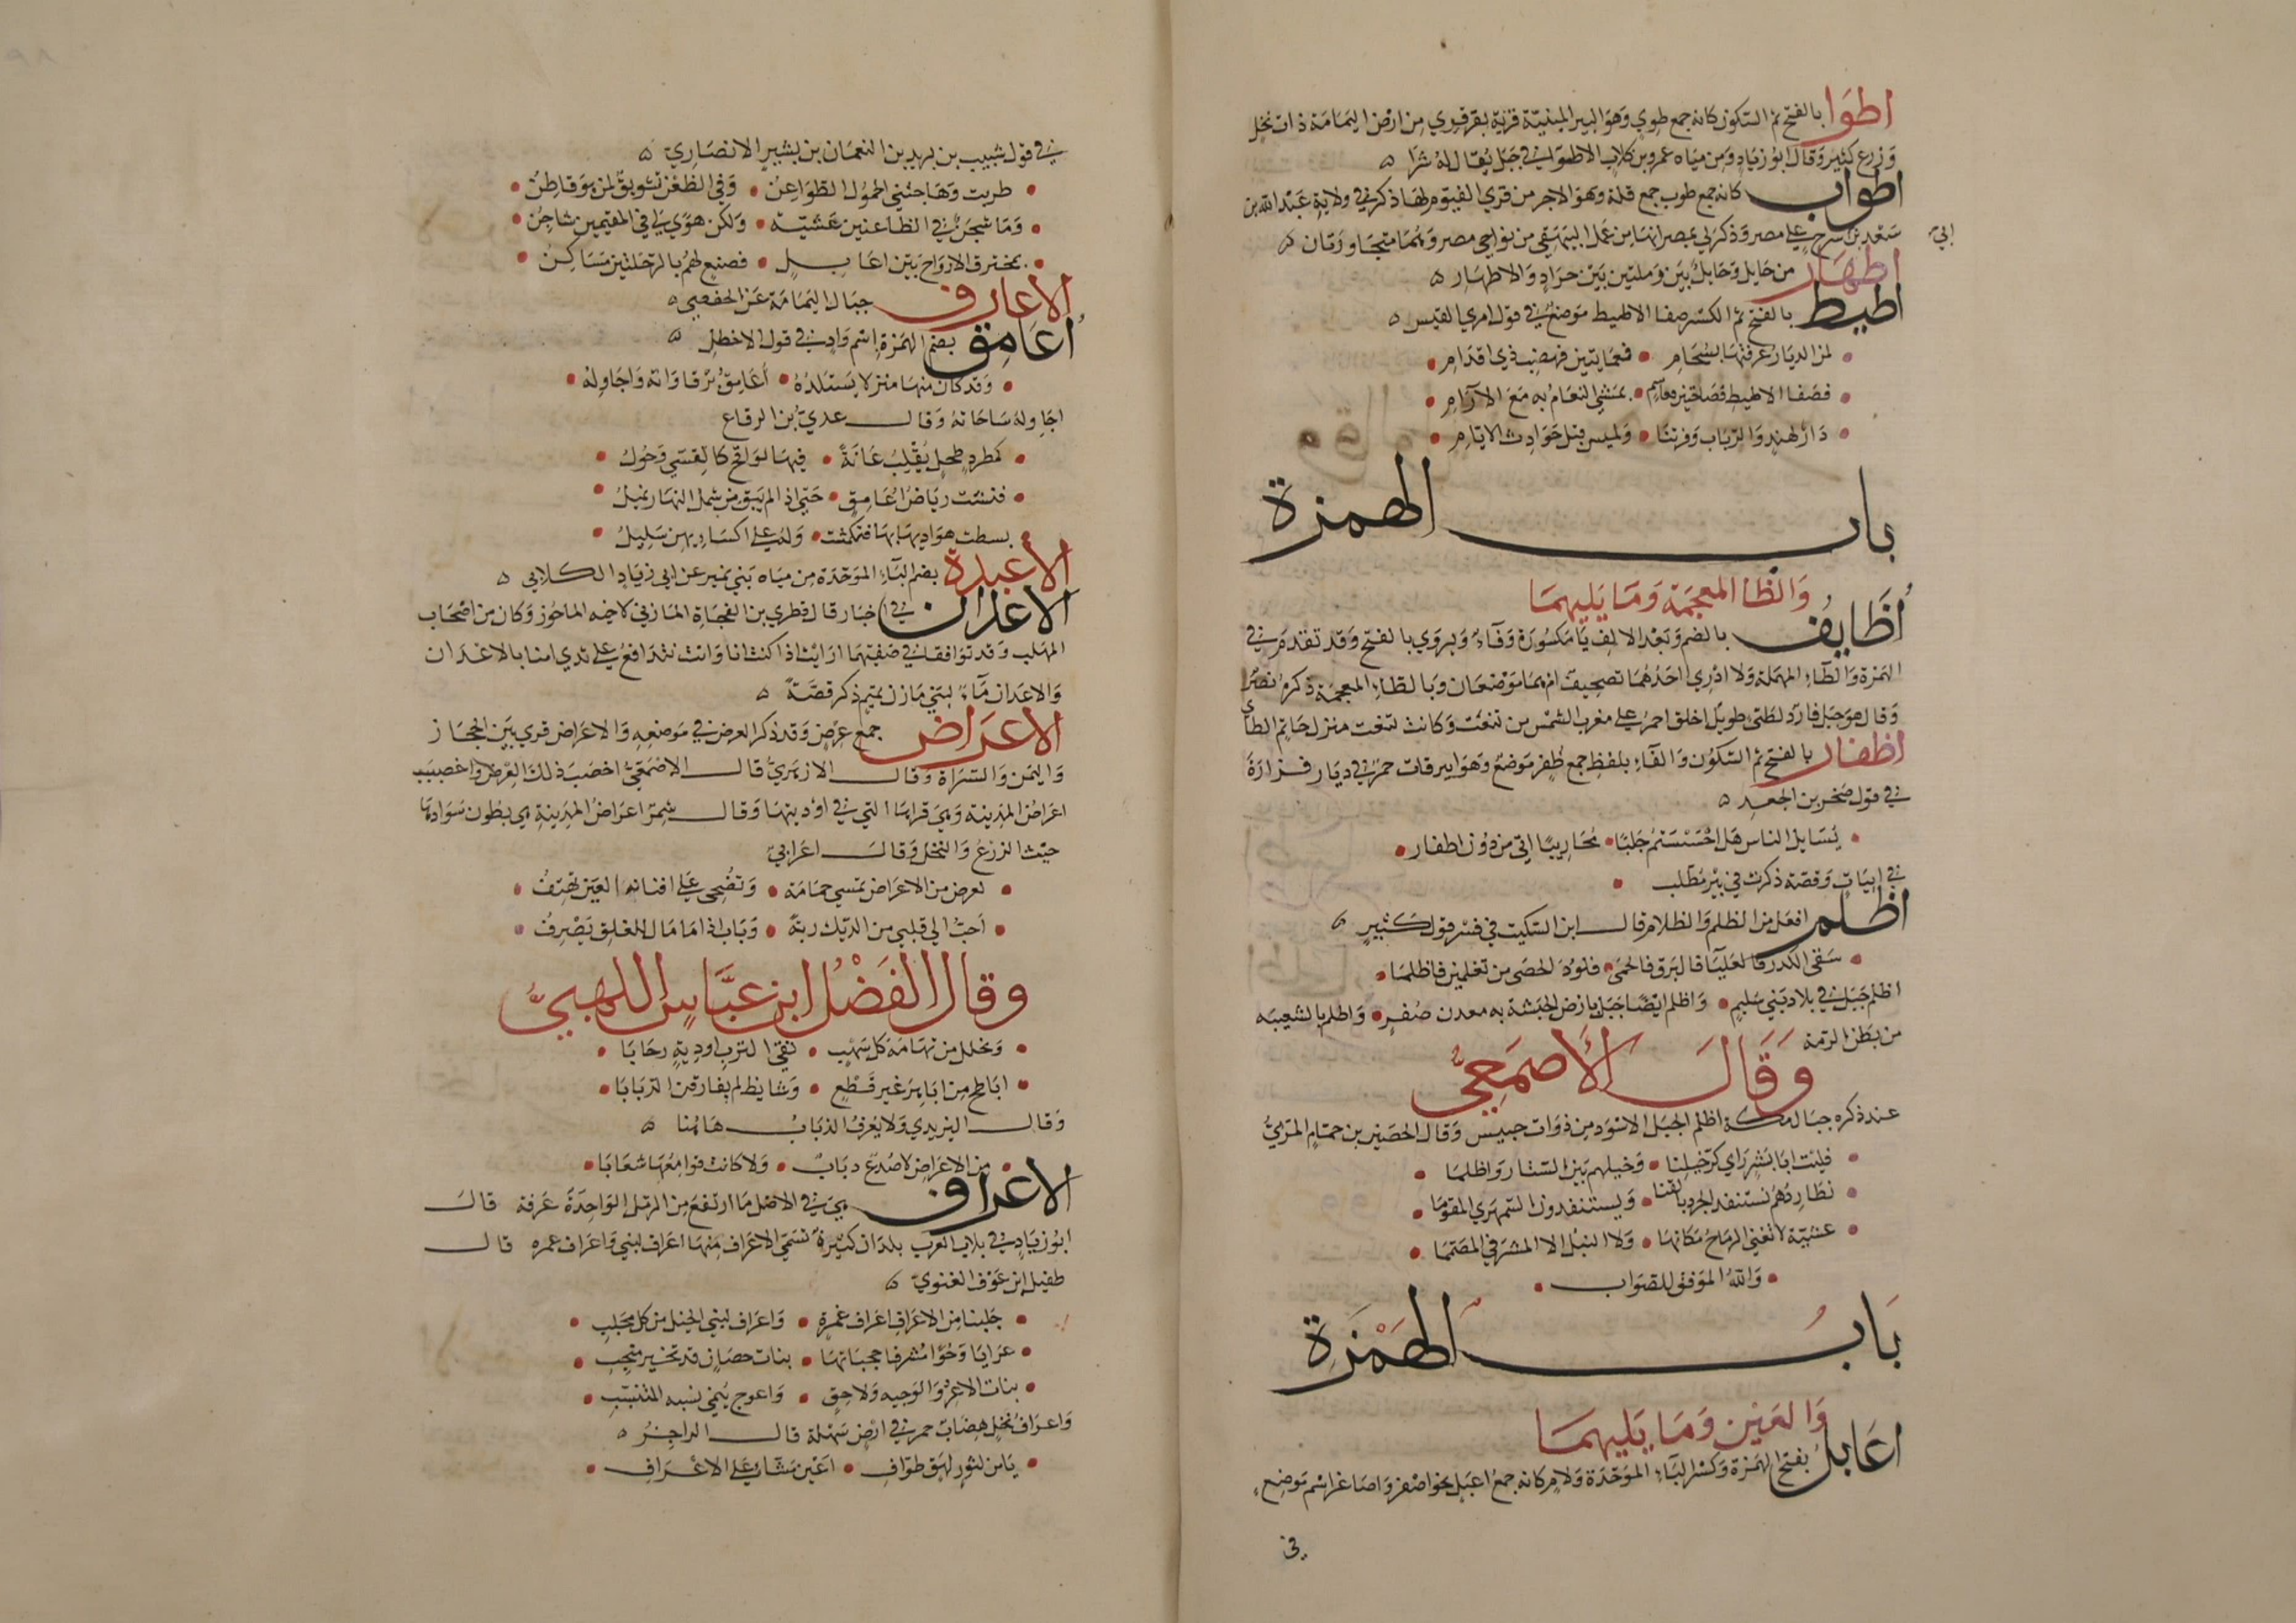 اطوا بالفتح ثم السكون كانه جمع طوي وهو البير المبنية قرية بقرقري من ارض اليمامة ذات نخل
وزرع كثير وقال ابو زياد ومن مياه عمرو بن كلاب الاطوا في جبل يقال له شرا ه
اطواب كانه جمع طوب جمع قلة وهو الاجر من قري الفيوم لها ذكر في ولاية عبد الله بن
سعد بن ابي سرح علي مصر وذكر لي بمصر انها من عمل البهنسي من نواحي مصر وهما متجاورتان ه
اطهار من حايل وحايل بين رملتين بين جراد والاطهار ه
اطيط بالفتح ثم الكسر صفا الاطيط موضع في قول امري القيس ه
لمن الديار عرفتها بسحام • فعمايتين فهضب ذي اقدام
فصفا الاطيط فصاحتين فعاسم • تمشي النعام به مع الآرام
دار لهند والرباب وفرتنا • ولميس قبل حوادث الايام
باب الهمزة
والظا المعجمة وما يليهما
أظايف بالضم وبعد الالف يا مكسورة وفاء ويروي بالفتح وقد تقدم في
الهمزة والطاء المهملة ولا ادري احدهما تصحيف ام هما موضعان وبالظاء المعجمة ذكره نصر
وقال هو جبل فارد لطئ طويل اخلق احمر علي مغرب الشمس من تنغة وكانت تنغت منزل حاتم الطاي
اظفار بالفتح ثم السكون والفاء بلفظ جمع ظفر موضع وهو ابيرقات حمر في ديار فزارة
في قول صخر بن الجعد ه
يسايل الناس هل احسستم جلبا • محاربيا اتي من دون اظفار
في ابيات وقصة ذكرت في بير مطلب
اظلم افعل من الظلم والظلام قال ابن السكيت في فسر قول كثير ه
سقي الكدر فالعلياء فالبرق فالحمي • فلوذ الحصي من تغلمين فاظلما
اظلم جبل في بلاد بني سليم • واظلم ايضا جبل بارض الحبشة به معدن صفر • واظلم بالشعيبه
من بطن الرمة
وقال الأصمعي
عند ذكره جبال مكة اظلم الجبل الاسود من ذوات حبيس وقال الحصين بن حمام المري
فليت ابا بشر راي كر خيلنا • وخيلهم بين الستار واظلما
نطاردهم نستنقذ الجرد بالقنا • ويستنقذون السمهري المقوما
عشية لا تغني الرماح مكانها • ولا النبل الا المشرفي المصمما
والله الموفق للصواب
باب الهمزة
والعين وما يليهما
اعابل بفتح الهمزة وكسر الباء الموحدة ولام كانه جمع اعبل نحو اصغر واصاغر اسم موضع
في
في قول شبيب بن يزيد بن النعمان بن بشير الانصاري ه
طربت وهاجتني الحمول الظواعن • وفي الظعن تشويق لمن هو قاطن
وما شجن في الظاعنين عشية • ولكن هوي لي في المقيمين شاجن
بمخترق الارواح بين اعابل • فصنع لهم بالرحلتين مساكن
الاعارف جبال اليمامة عن الحفصي ه
أعامق بضم الهمزة اسم واد في قول الاخطل ه
وقد كان منها منزلا يستلذه • أعامق برقاواته واجاوله
اجاوله ساحاته وقال عدي بن الرقاع
كمطرد طحل يقلب عانة • فيها لواقح كالقسي وحول
فنشت رياض اعامق • حتي اذا لم يبق من شمل النهار ثميل
بسطت هواديها بها فتمكثت • وله علي اكسايهن سليل
الأعبدة بضم الباء الموحدة من مياه بني نمير عن ابي زياد الكلابي ه
الاعدان في اخبار قال قطري بن الفجاة المازني لاخيه الماحوز وكان من اصحاب
المهلب وقد توافقا في صفيهما ارايت اذا كنت انا وانت نتدافع علي ثدي امنا بالاعدان
والاعدان ماء لبني مازن بن تميم ذكر قصة ه
الاعراض جمع عرض وقد ذكر العرض في موضعه والاعراض قري بين الحجاز
واليمن والسراة وقال الازهري قال الاصمعي اخصب ذلك العرض واخصبت
اعراض المدينة وهي قراها التي في اوديتها وقال شمر اعراض المدينة هي بطون سوادها
حيث الزرع والنخل وقال اعرابي
لعرض من الاعراض تمسي حمامه • وتضحي علي افنانه العين تهتف
احب الي قلبي من الديك رنة • وباب اذا ما مال للغلق يصرف
وقال الفضل ابن عباس اللهبي
ونحلل من تهامة كل سهب • نقي الترب اودية رحابا
اباطح من اباهر غير قطع • وشايظ لم يفارقن الذبابا
وقال اليزيدي ولا يعرف الذباب هاهنا ه
من الاعراض لا صدع دباب • ولا كانت قوامعها شعابا
الاعراف هي في الاصل ما ارتفع من الرمل الواحدة عرفة قال
ابو زياد في بلاد العرب بلدان كثيرة تسمي الاعراف منها اعراف لبني واعراف غمره قال
طفيل بن عوف الغنوي ه
جلبنا من الاعراف اعراف غمرة • واعراف لبني الخيل من كل مجلب
عرابا وحوا مشرفا حجباتها • بنات حصان قد تخير منجب
بنات الاعر والوجيه ولاحق • واعوج ينمي نسبه المتنسب
واعراف نخل هضاب حمر في ارض سهلة قال الراجز ه
يا من لثور لهق طواف • اعين مشاء علي الاعراف